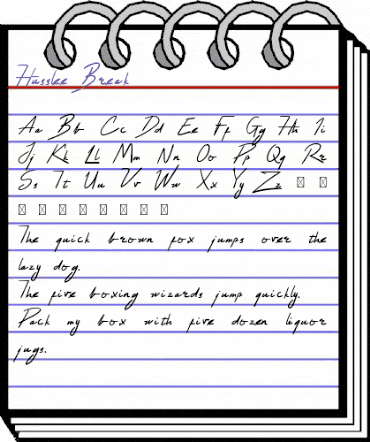 Husslee Break
Aa Bb Cc Dd Ee Ff Gg Hh Ii
Jj Kk Ll Mm Nn Oo Pp Qq Rr
Ss Tt Uu Vv Ww Xx Yy Zz
The quick brown fox jumps over the
lazy dog.
The five boxing wizards jump quickly.
Pack my box with five dozen liquor
jugs.